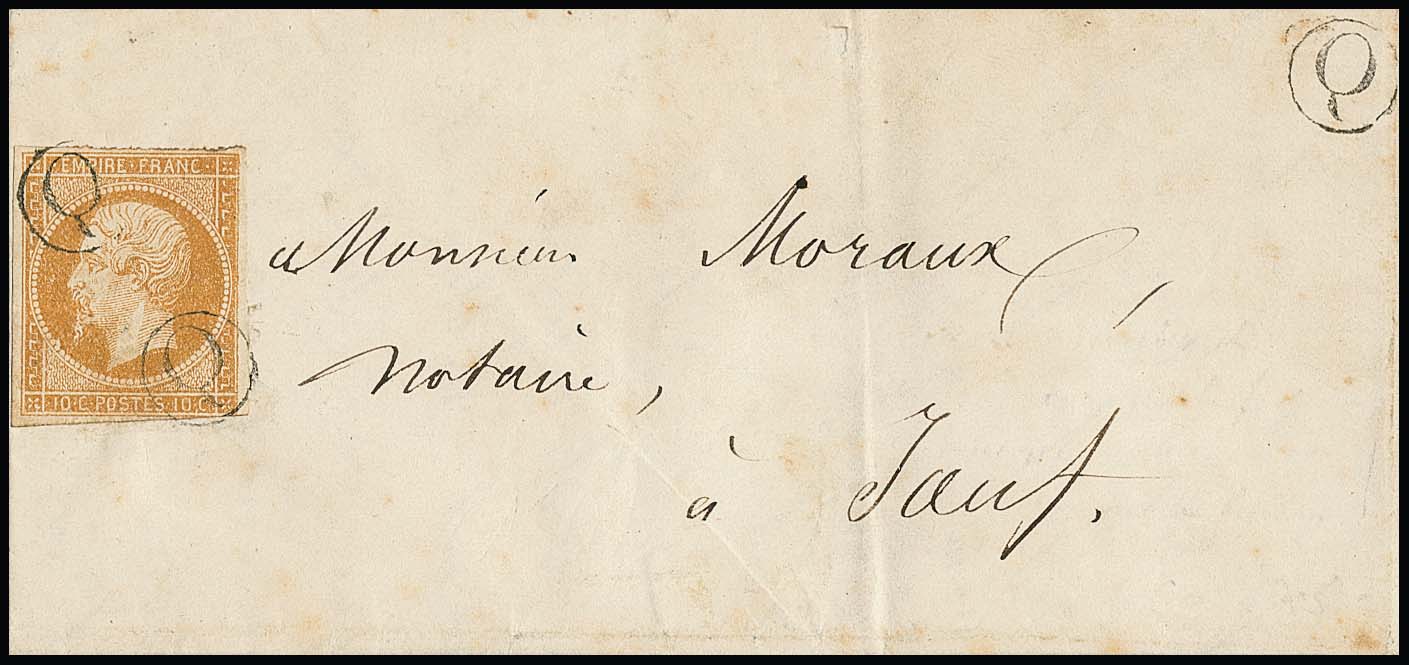 Q
EMPIRE FRANC
Q
a Monsieur Moraux,
Notaire,
Q
10.C. POSTES.10.C.
à Jauf.